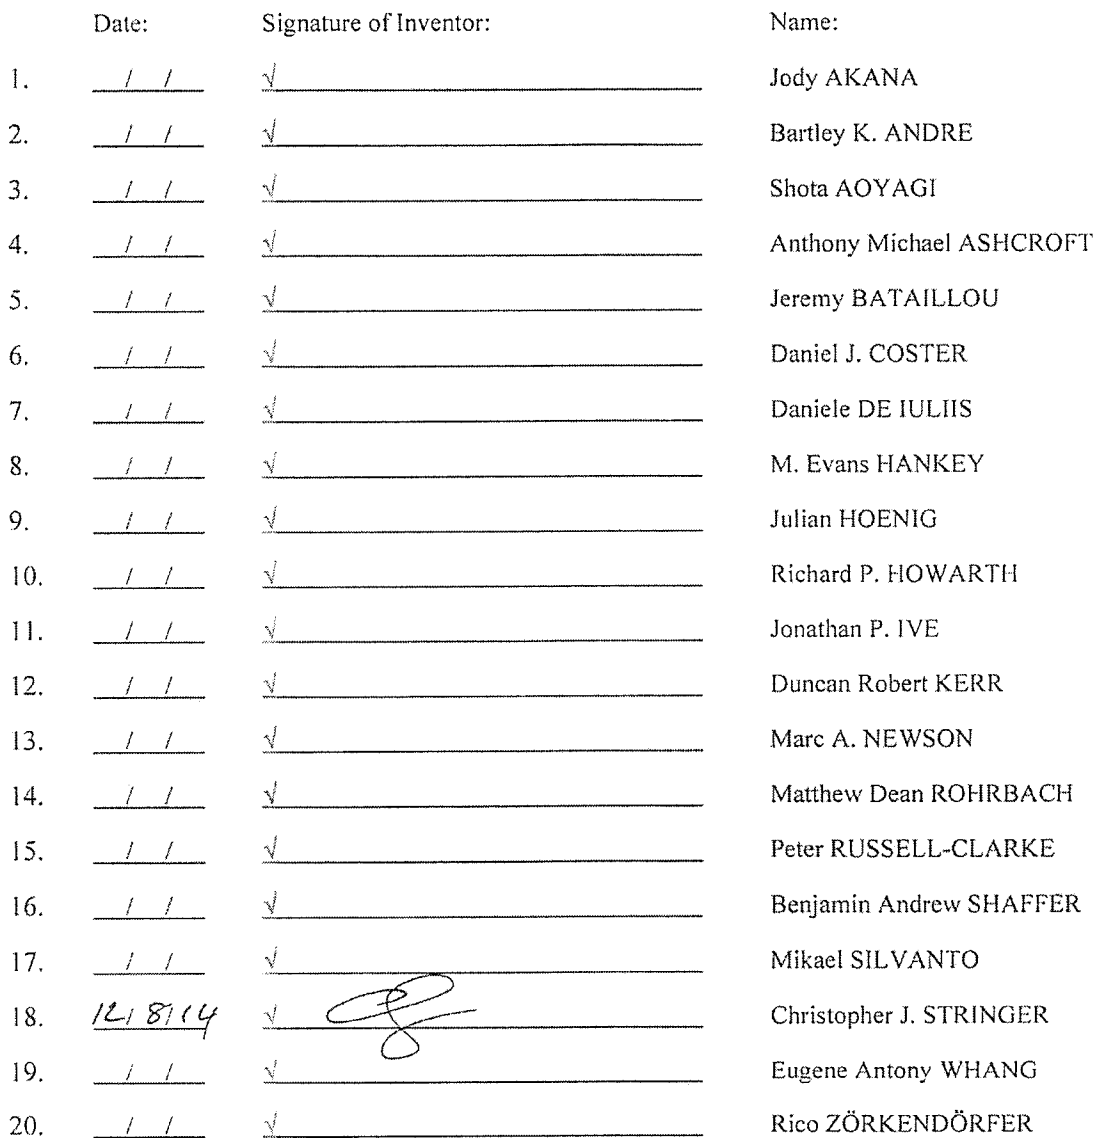 Date: Signature of Inventor: Name:
1. / / √ Jody AKANA
2. / / √ Bartley K. ANDRE
3. / / √ Shota AOYAGI
4. / / √ Anthony Michael ASHCROFT
5. / / √ Jeremy BATAILLOU
6. / / √ Daniel J. COSTER
7. / / √ Daniele DE IULIIS
8. / / √ M. Evans HANKEY
9. / / √ Julian HOENIG
10. / / √ Richard P. HOWARTH
11. / / √ Jonathan P. IVE
12. / / √ Duncan Robert KERR
13. / / √ Marc A. NEWSON
14. / / √ Matthew Dean ROHRBACH
15. / / √ Peter RUSSELL-CLARKE
16. / / √ Benjamin Andrew SHAFFER
17. / / √ Mikael SILVANTO
18. 12/8/14 √ Christopher J. STRINGER
19. / / √ Eugene Antony WHANG
20. / / √ Rico ZÖRKENDÖRFER